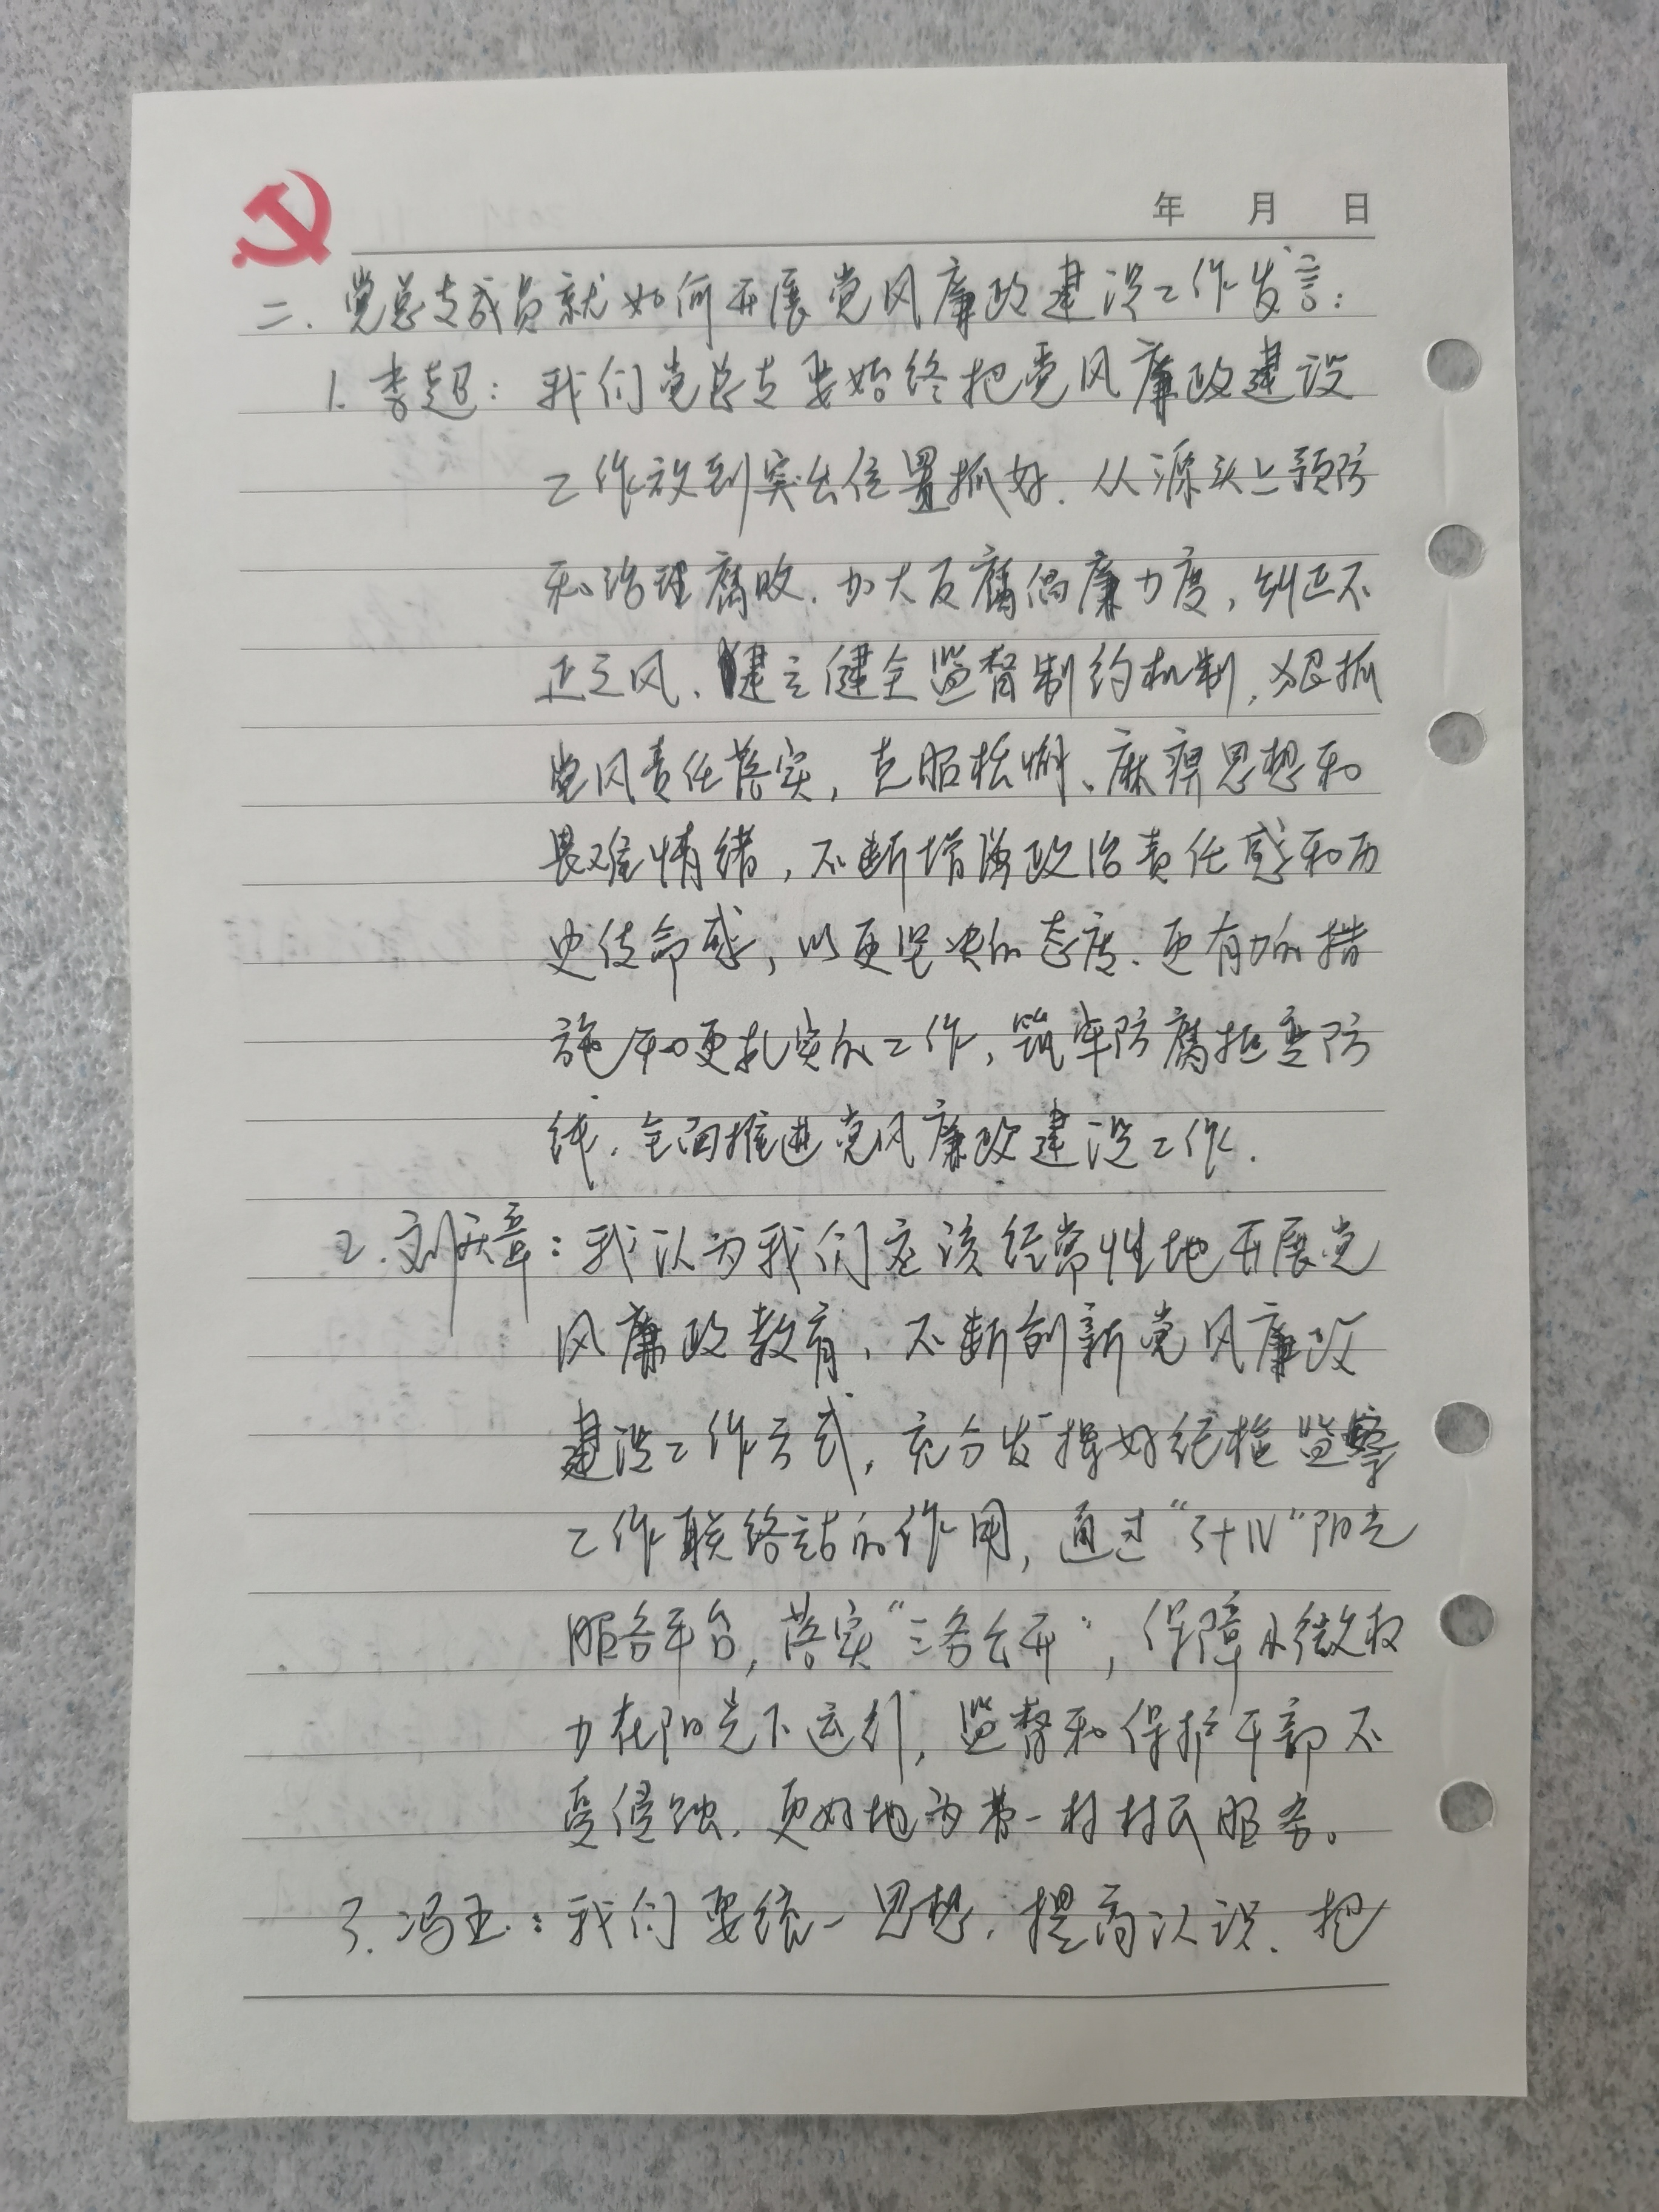 年 月 日
二、党总支成员就如何开展党风廉政建设工作发言：
1. 李超：我们党总支要始终把党风廉政建设
工作放到突出位置抓好、从源头上预防
和治理腐败、加大反腐倡廉力度，纠正不
正之风、建立健全监督制约机制，狠抓
党风责任落实，克服松懈、麻痹思想和
畏难情绪，不断增强政治责任感和历
史使命感，以更坚决的态度、更有力的措
施和更扎实的工作，筑牢防腐拒变防
线、全面推进党风廉政建设工作.
2. 刘庆章：我认为我们应该经常性地开展党
风廉政教育，不断创新党风廉政
建设工作方式，充分发挥好纪检监察
工作联络站的作用，通过“5+N”阳光
服务平台，落实“三务公开”，保障小微权
力在阳光下运行，监督和保护干部不
受侵蚀、更好地为第一村村民服务。
3. 冯玉：我们要统一思想，提高认识、把